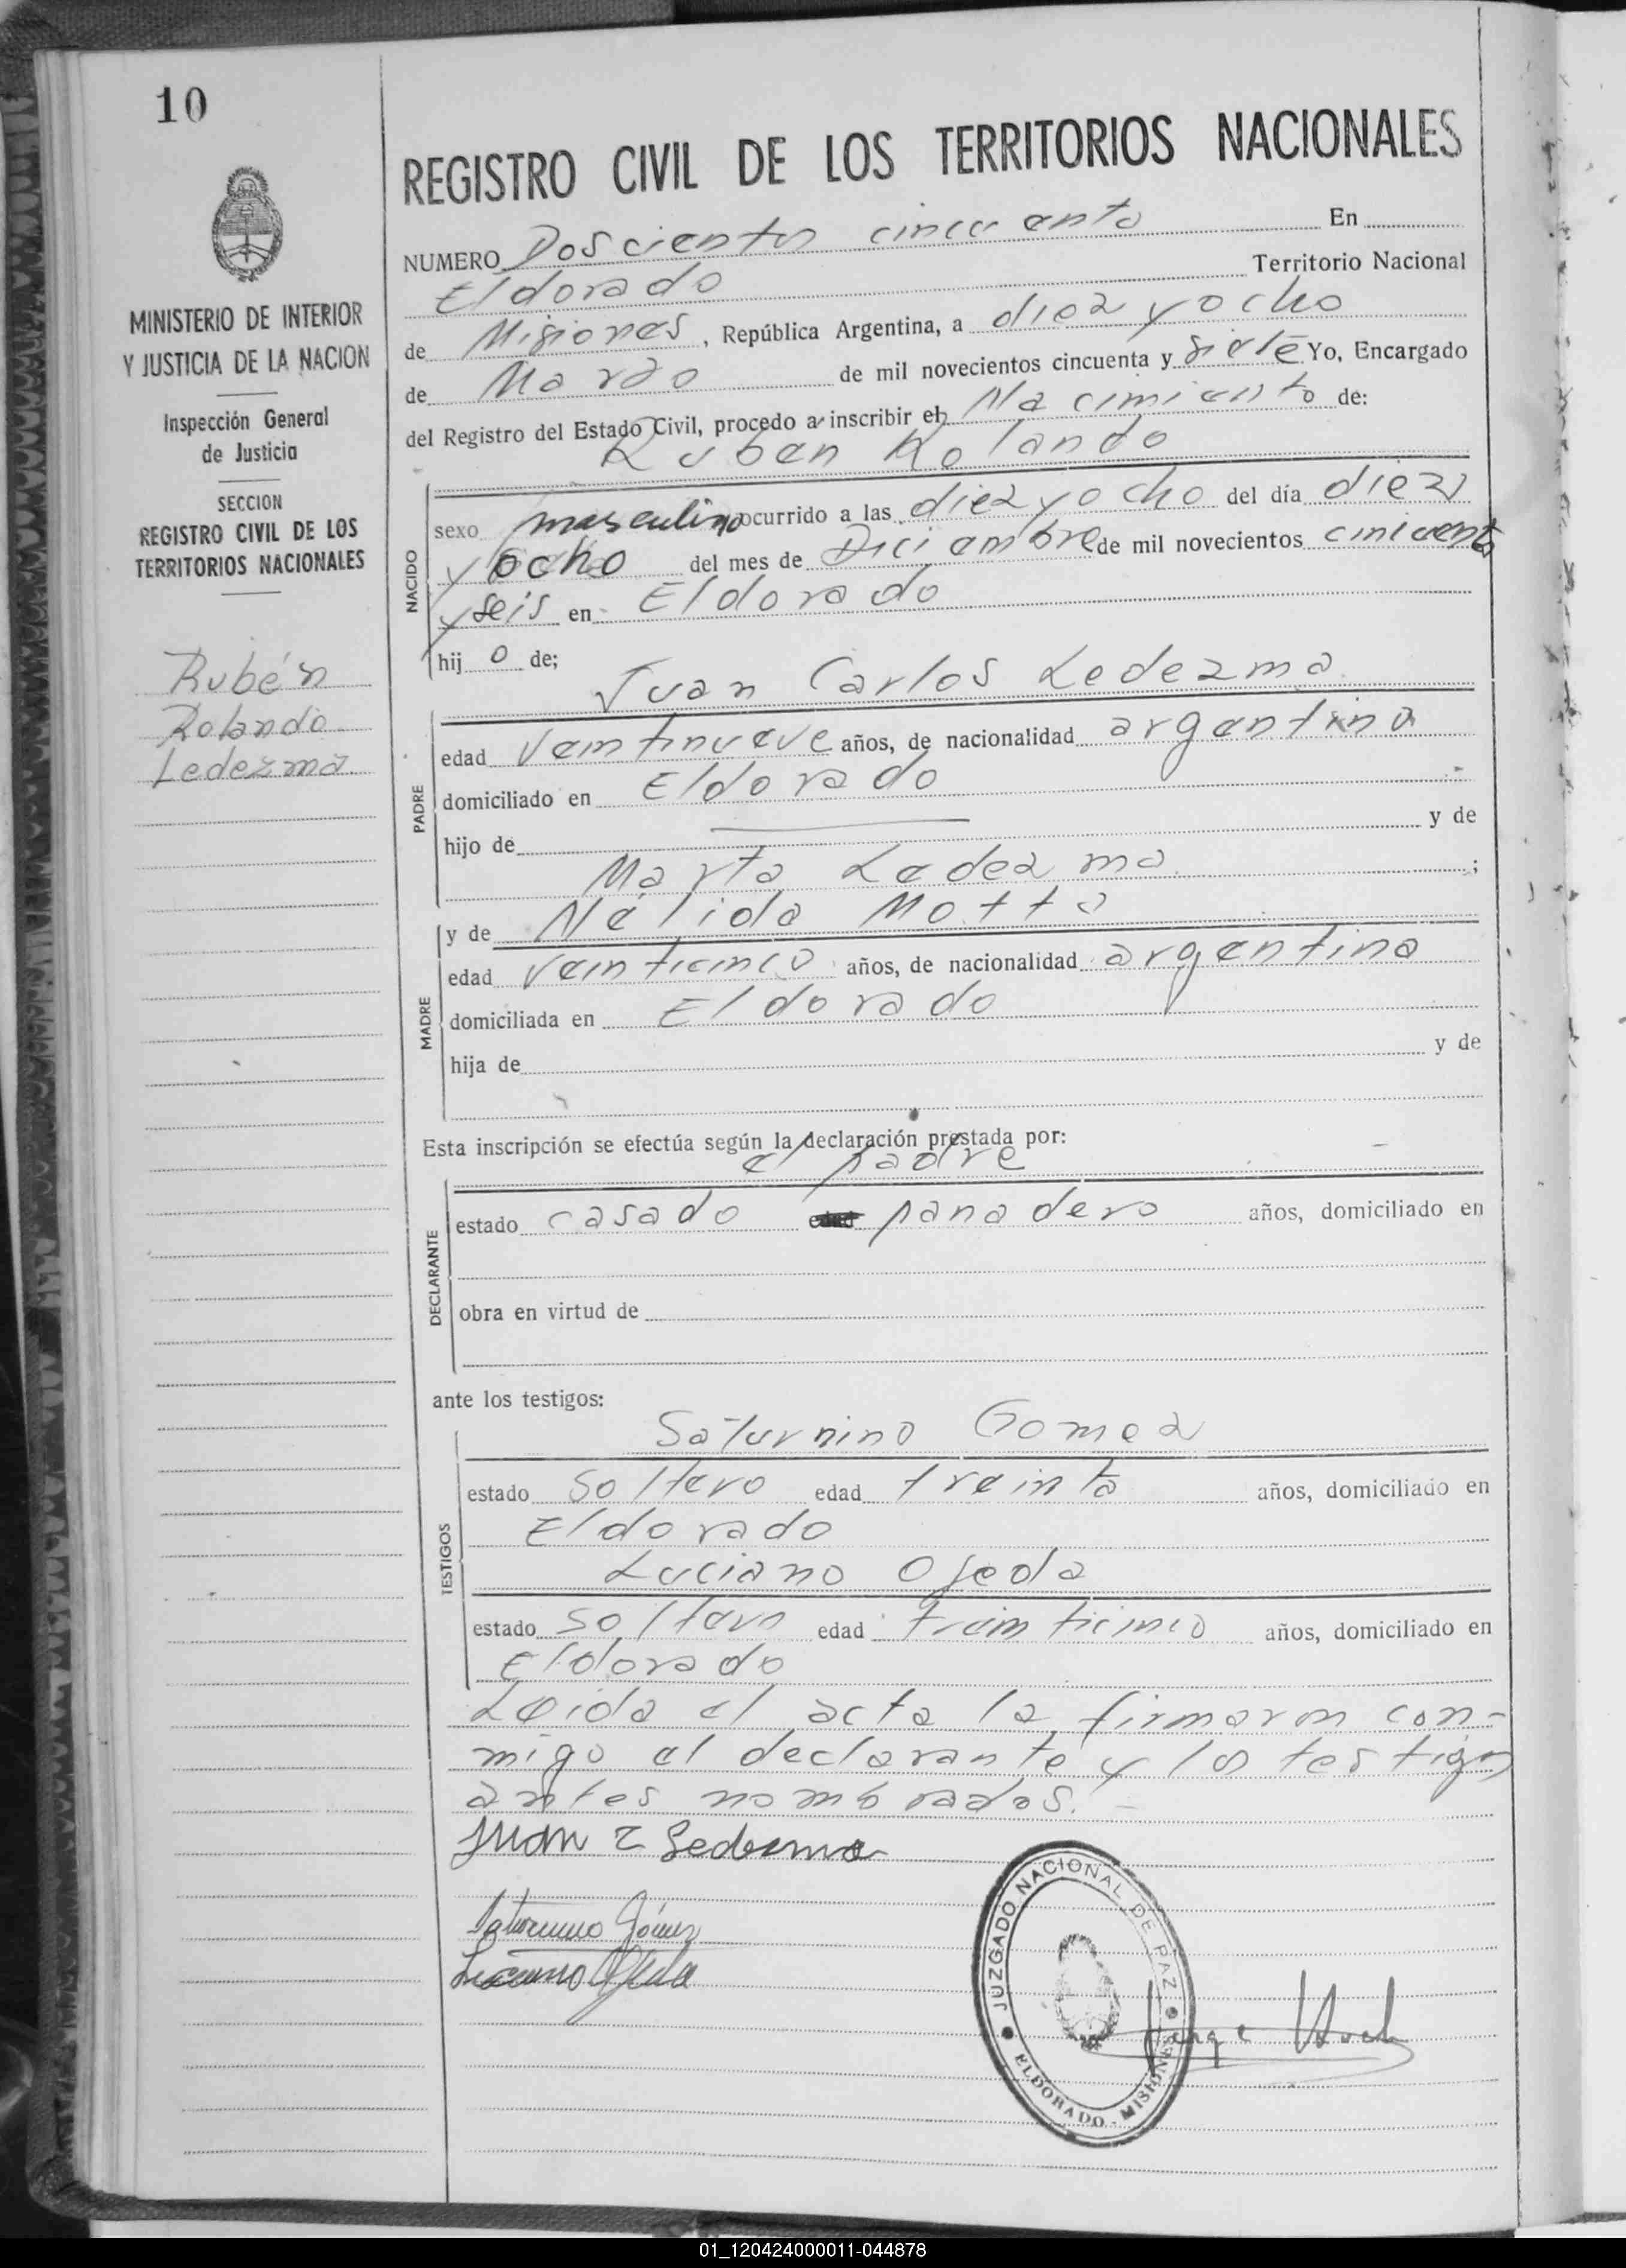 10
REGISTRO CIVIL DE LOS TERRITORIOS NACIONALES
MINISTERIO DE INTERIOR
Y JUSTICIA DE LA NACION
Inspección General
de Justicia
SECCION
REGISTRO CIVIL DE LOS
TERRITORIOS NACIONALES
Rubén
Rolando
Ledezma
NUMERO Doscientos cincuenta En
Eldorado Territorio Nacional
de Misiones, República Argentina, a diez y ocho
de Marzo de mil novecientos cincuenta y siete Yo, Encargado
del Registro del Estado Civil, procedo a inscribir el Nacimiento de:
Ruben Rolando
NACIDO
sexo masculino ocurrido a las diez y ocho del día diez
y ocho del mes de Diciembre de mil novecientos cincuenta
y seis en Eldorado
hij o de;
Juan Carlos Ledezma
PADRE
edad veintinueve años, de nacionalidad argentina
domiciliado en Eldorado
hijo de y de
Marta Ledezma ;
y de Nélida Motta
MADRE
edad veinticinco años, de nacionalidad argentina
domiciliada en Eldorado
hija de y de
Esta inscripción se efectúa según la declaración prestada por:
el padre
DECLARANTE
estado casado edad panadero años, domiciliado en
obra en virtud de
ante los testigos:
Saturnino Gomez
TESTIGOS
estado soltero edad treinta años, domiciliado en
Eldorado
Luciano Ojeda
estado soltero edad treinticinco años, domiciliado en
Eldorado
Leida el acta la firmaron con-
migo el declarante y los testigos
antes nombrados. -
Juan C Ledezma
Saturnino Gómez
Luciano Ojeda
JUZGADO NACIONAL DE PAZ
ELDORADO - MISIONES
Jorge
01_120424000011-044878